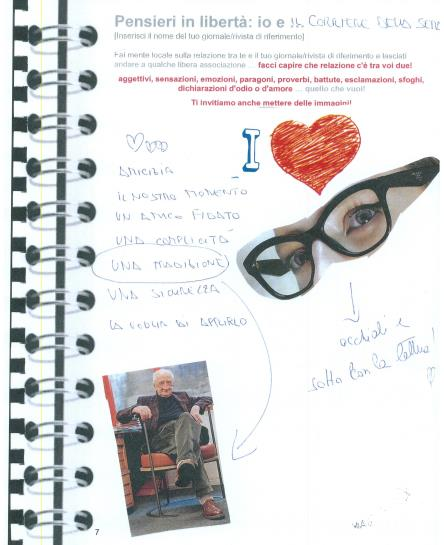 Pensieri in libertà: io e IL CORRIERE DELLA SERA
[Inserisci il nome del tuo giornale/rivista di riferimento]
Fai mente locale sulla relazione tra te e il tuo giornale/rivista di riferimento e lasciati
andare a qualche libera associazione ... facci capire che relazione c'è tra voi due!
aggettivi, sensazioni, emozioni, paragoni, proverbi, battute, esclamazioni, sfoghi,
dichiarazioni d'odio o d'amore ... quello che vuoi!
Ti invitiamo anche mettere delle immagini!
I
AMICIZIA
IL NOSTRO MOMENTO
UN AMICO FIDATO
UNA COMPLICITÀ
UNA TRADIZIONE
UNA SICUREZZA
LA VOGLIA DI APRIRLO
occhiali e
sotto con la lettura!
7